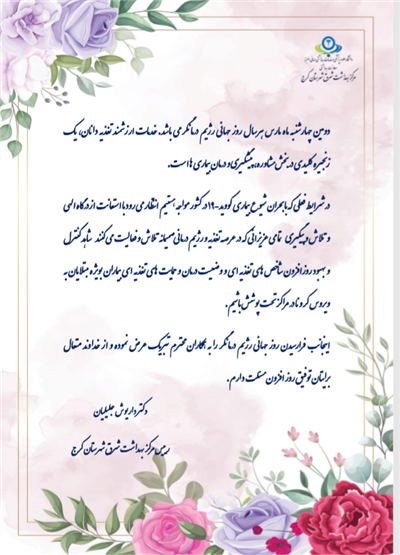 مرکز بهداشت شرق شهرستان کرج
دومین چهارشنبه ماه مارس هر سال روز جهانی رژیم درمانگر می باشد. خدمات ارزشمند تغذیه دانان، یک
زنجیره کلیدی در بخش مشاوره، پیشگیری و درمان بیماری ها است.
در شرایط فعلی که با بحران شیوع بیماری کووید-۱۹ در کشور مواجه هستیم انتظار می رود با استعانت از درگاه الهی
و تلاش و پیگیری تمامی عزیزانی که در عرصه تغذیه و رژیم درمانی صمیمانه تلاش و فعالیت می کنند شاهد کنترل
و بهبود روز افزون شاخص های تغذیه ای و وضعیت درمان و حمایت های تغذیه ای بیماران بویژه مبتلایان به
ویروس کرونا در مراکز تحت پوشش باشیم.
اینجانب فرارسیدن روز جهانی رژیم درمانگر را به همکاران محترم تبریک عرض نموده و از خداوند متعال
برایتان توفیق روز افزون مسئلت دارم.
دکتر داریوش جلیلیان
رییس مرکز بهداشت شرق شهرستان کرج